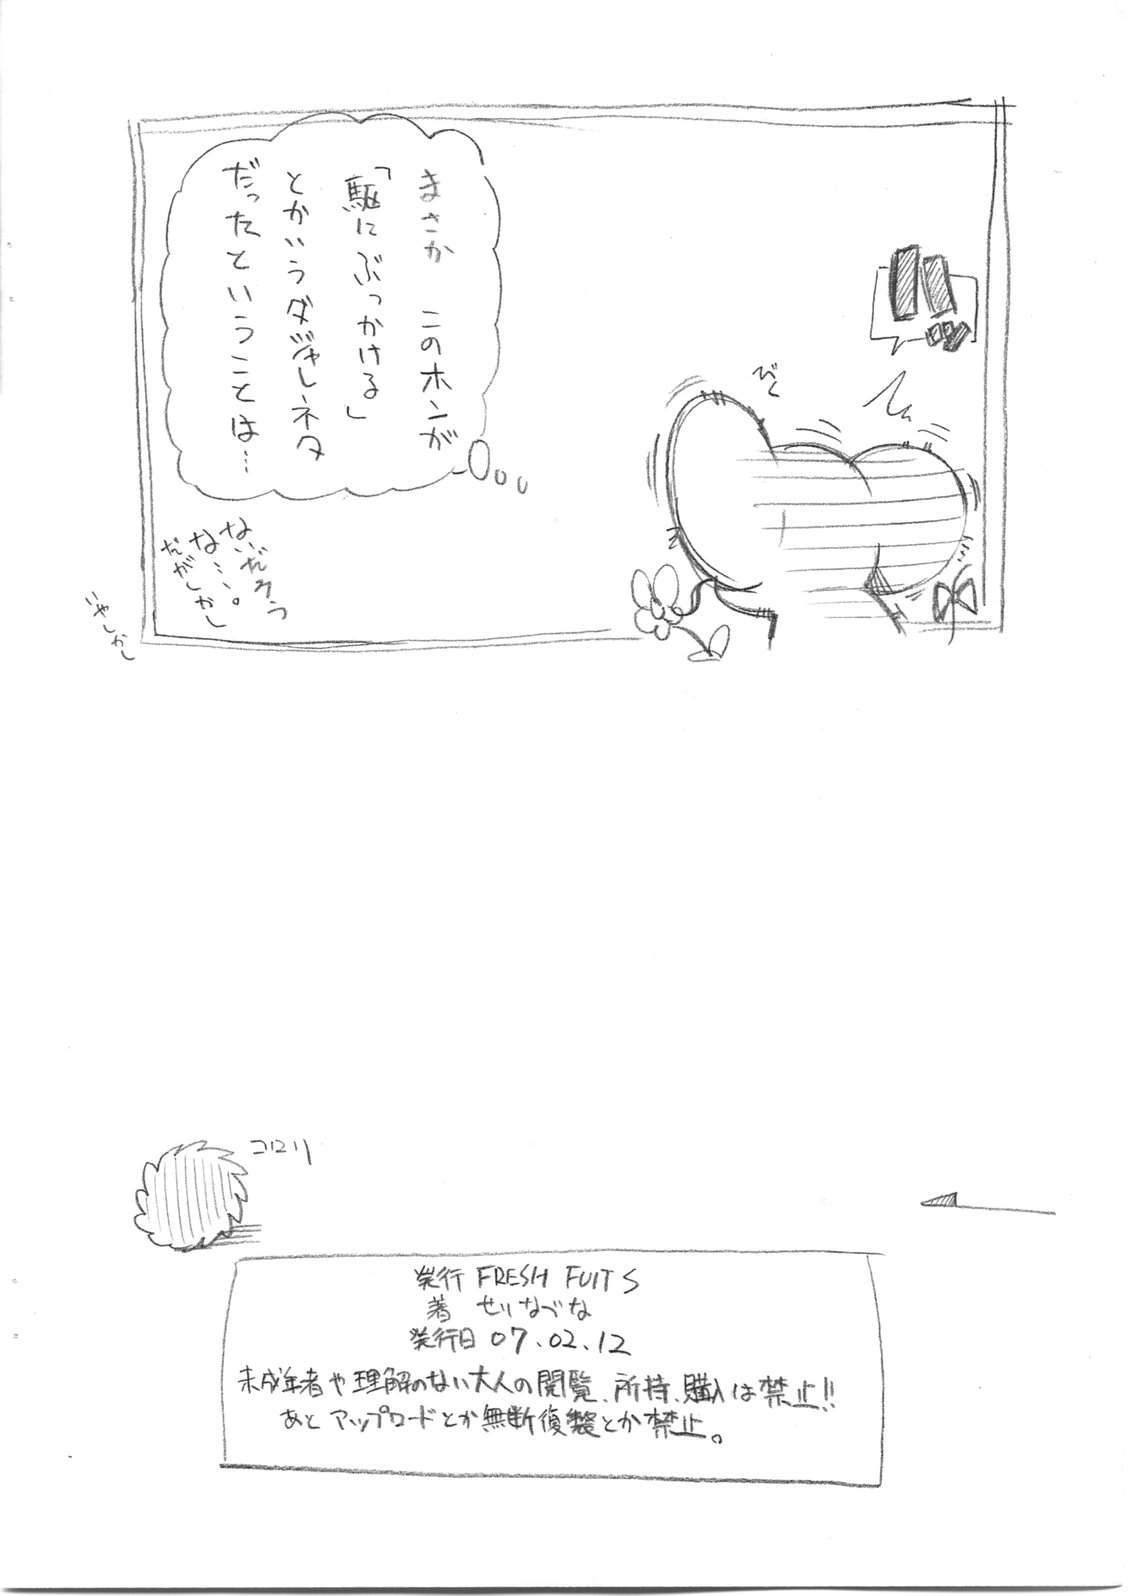 まさか このホンが
「駆にぶっかける」
とかいうダジャレネタ
だったということは…
ないだろう
な…。
だがしかし
いやしかし
びく
コロリ
発行 FRESH FUITS
著 せいなづな
発行日 07.02.12
未成年者や理解のない大人の閲覧、所持、購入は禁止!!
あとアップロードとか無断復製とか禁止。